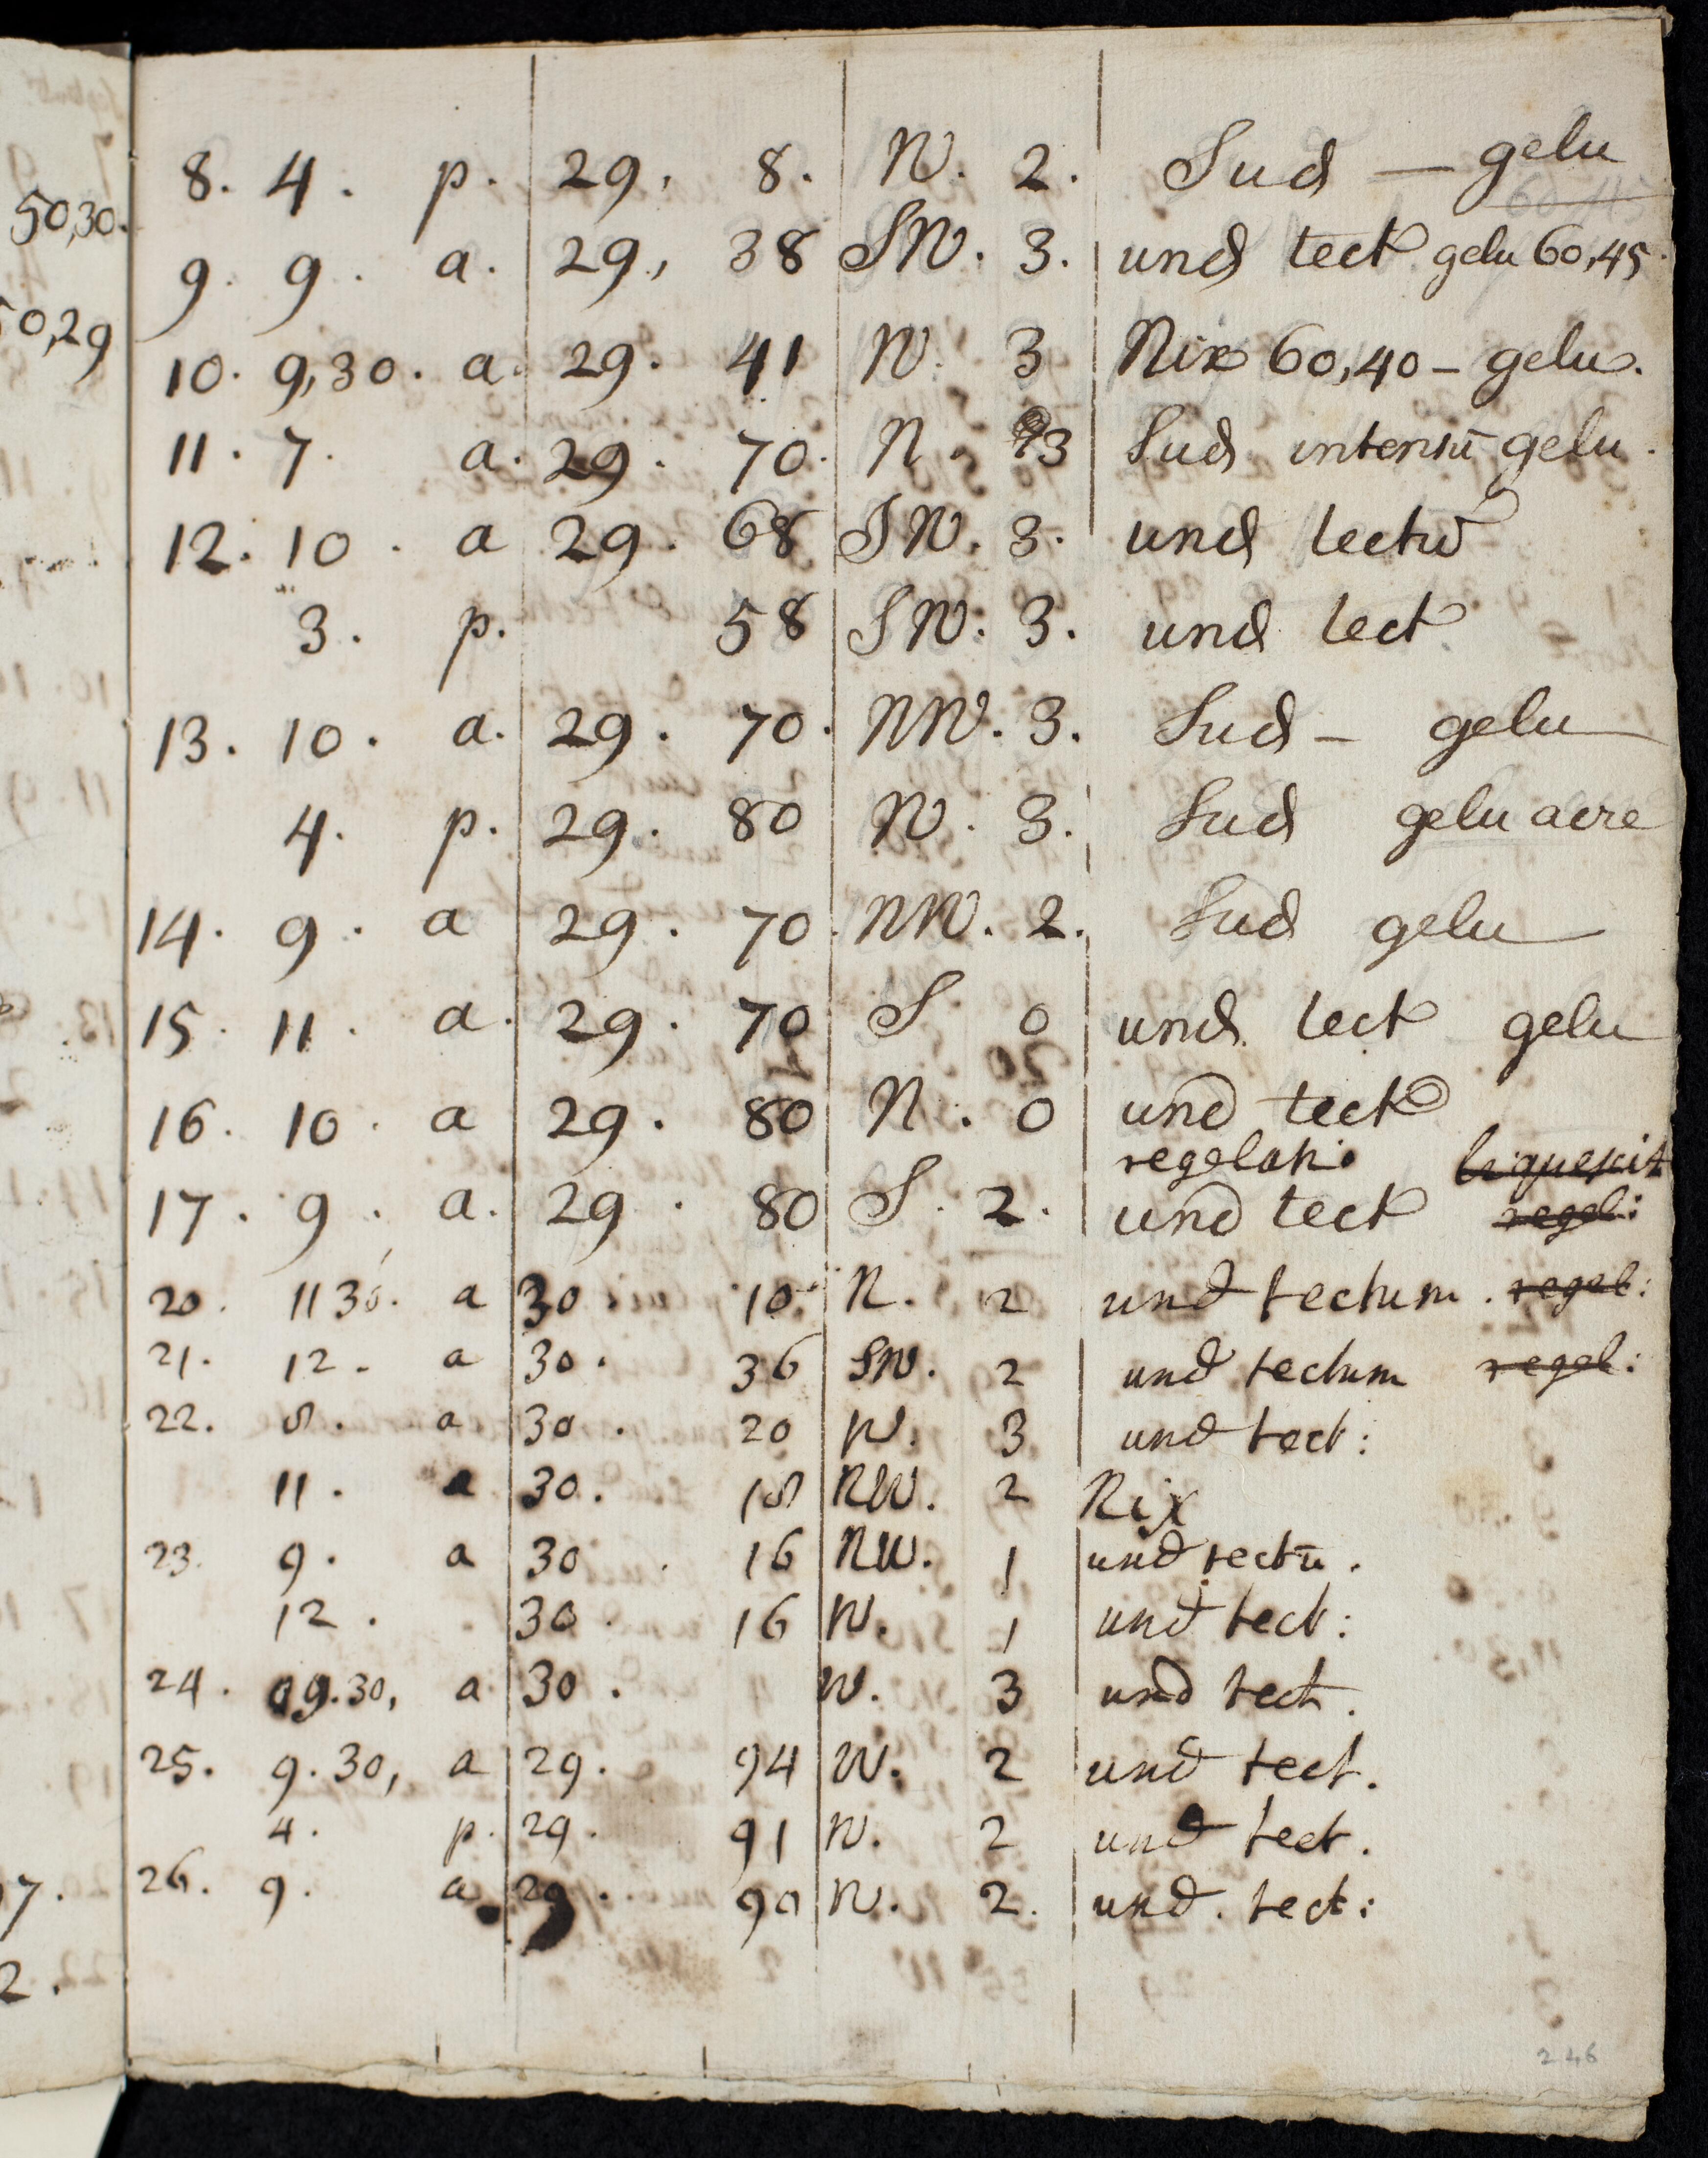 50,30.
50,29
7.
2.
8. 4. p. 29, 8. W. 2. Sud — gelu
9. 9. a. 29, 38 SW. 3. und tect gelu 60,45.
10. 9,30. a. 29. 41 W. 3 Nix 60,40 – gelu.
11. 7. a. 29. 70. N. 3 Sud intensū gelu.
12. 10. a 29. 68 SW. 3. und tectū
3. p. 58 SW. 3. und tect
13. 10. a. 29. 70. NW. 3. Sud – gelu
4. p. 29. 80 W. 3. Sud gelu acre
14. 9. a 29. 70. NW. 2. Sud gelu
15. 11. a. 29. 70 S 0 und tect gelu
16. 10. a 29. 80 N. 0 und tect
regelatio liquescit
17. 9. a. 29. 80 S. 2. und tect regel:
20. 11 30. a 30. 10. N. 2 und tectum. regel:
21. 12. a 30. 36 SW. 2 und tectum regel:
22. 8. a 30. 20 W. 3 und tect:
11. a 30. 18 NW. 2 Nix
23. 9. a 30. 16 NW. 1 und tectū.
12. 30. 16 W. 1 und tect:
24. 09.30, a 30. W. 3 und tect.
25. 9.30, a 29. 94 W. 2 und tect.
4. p. 29. 91 W. 2 und tect.
26. 9. a 29. 90 W. 2. und. tect:
246